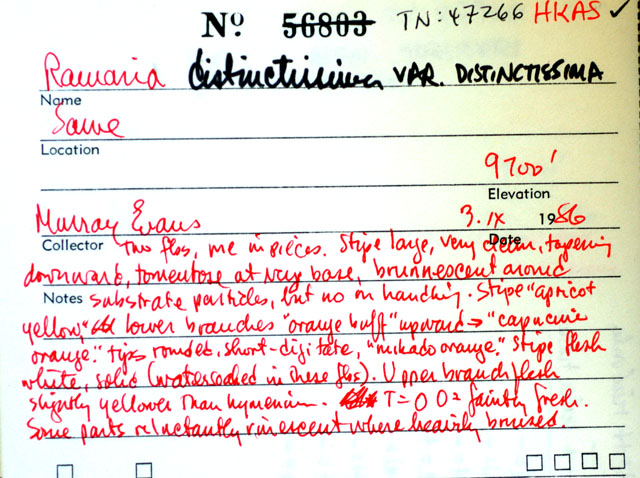 No 56803 TN: 47266 HKAS ✓
Ramaria distinctissima VAR. DISTINCTISSIMA
Name
Same
Location
9700'
Elevation
Murray Evans 3. IX 1986
Collector Date
Two fbs, one in pieces. Stipe large, very clean, tapering
downward, tomentose at very base, brunnescent around
Notes substrate particles, but no on handling. Stipe "apricot
yellow," lower branches "orange buff" upward → "capucine
orange." tips rounded, short-digitate, "mikado orange." Stipe flesh
white, solid (watersoaked in these fbs). Upper branch flesh
slightly yellower than hymenium. T=O O= faintly fresh.
Some parts reluctantly vinescent where heavily bruised.